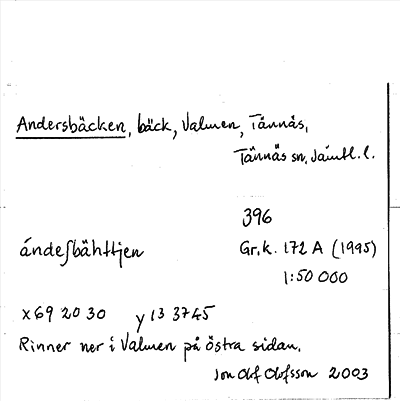 Andersbäcken, bäck, Valmen, Tännäs,
Tännäs sn, Jämtl. l.
396
ándeʃbähttjen
Gr.k. 172 A (1995)
1:50 000
x 69 20 30 y 13 3745
Rinner ner i Valmen på östra sidan.
Jon Olof Olofsson 2003